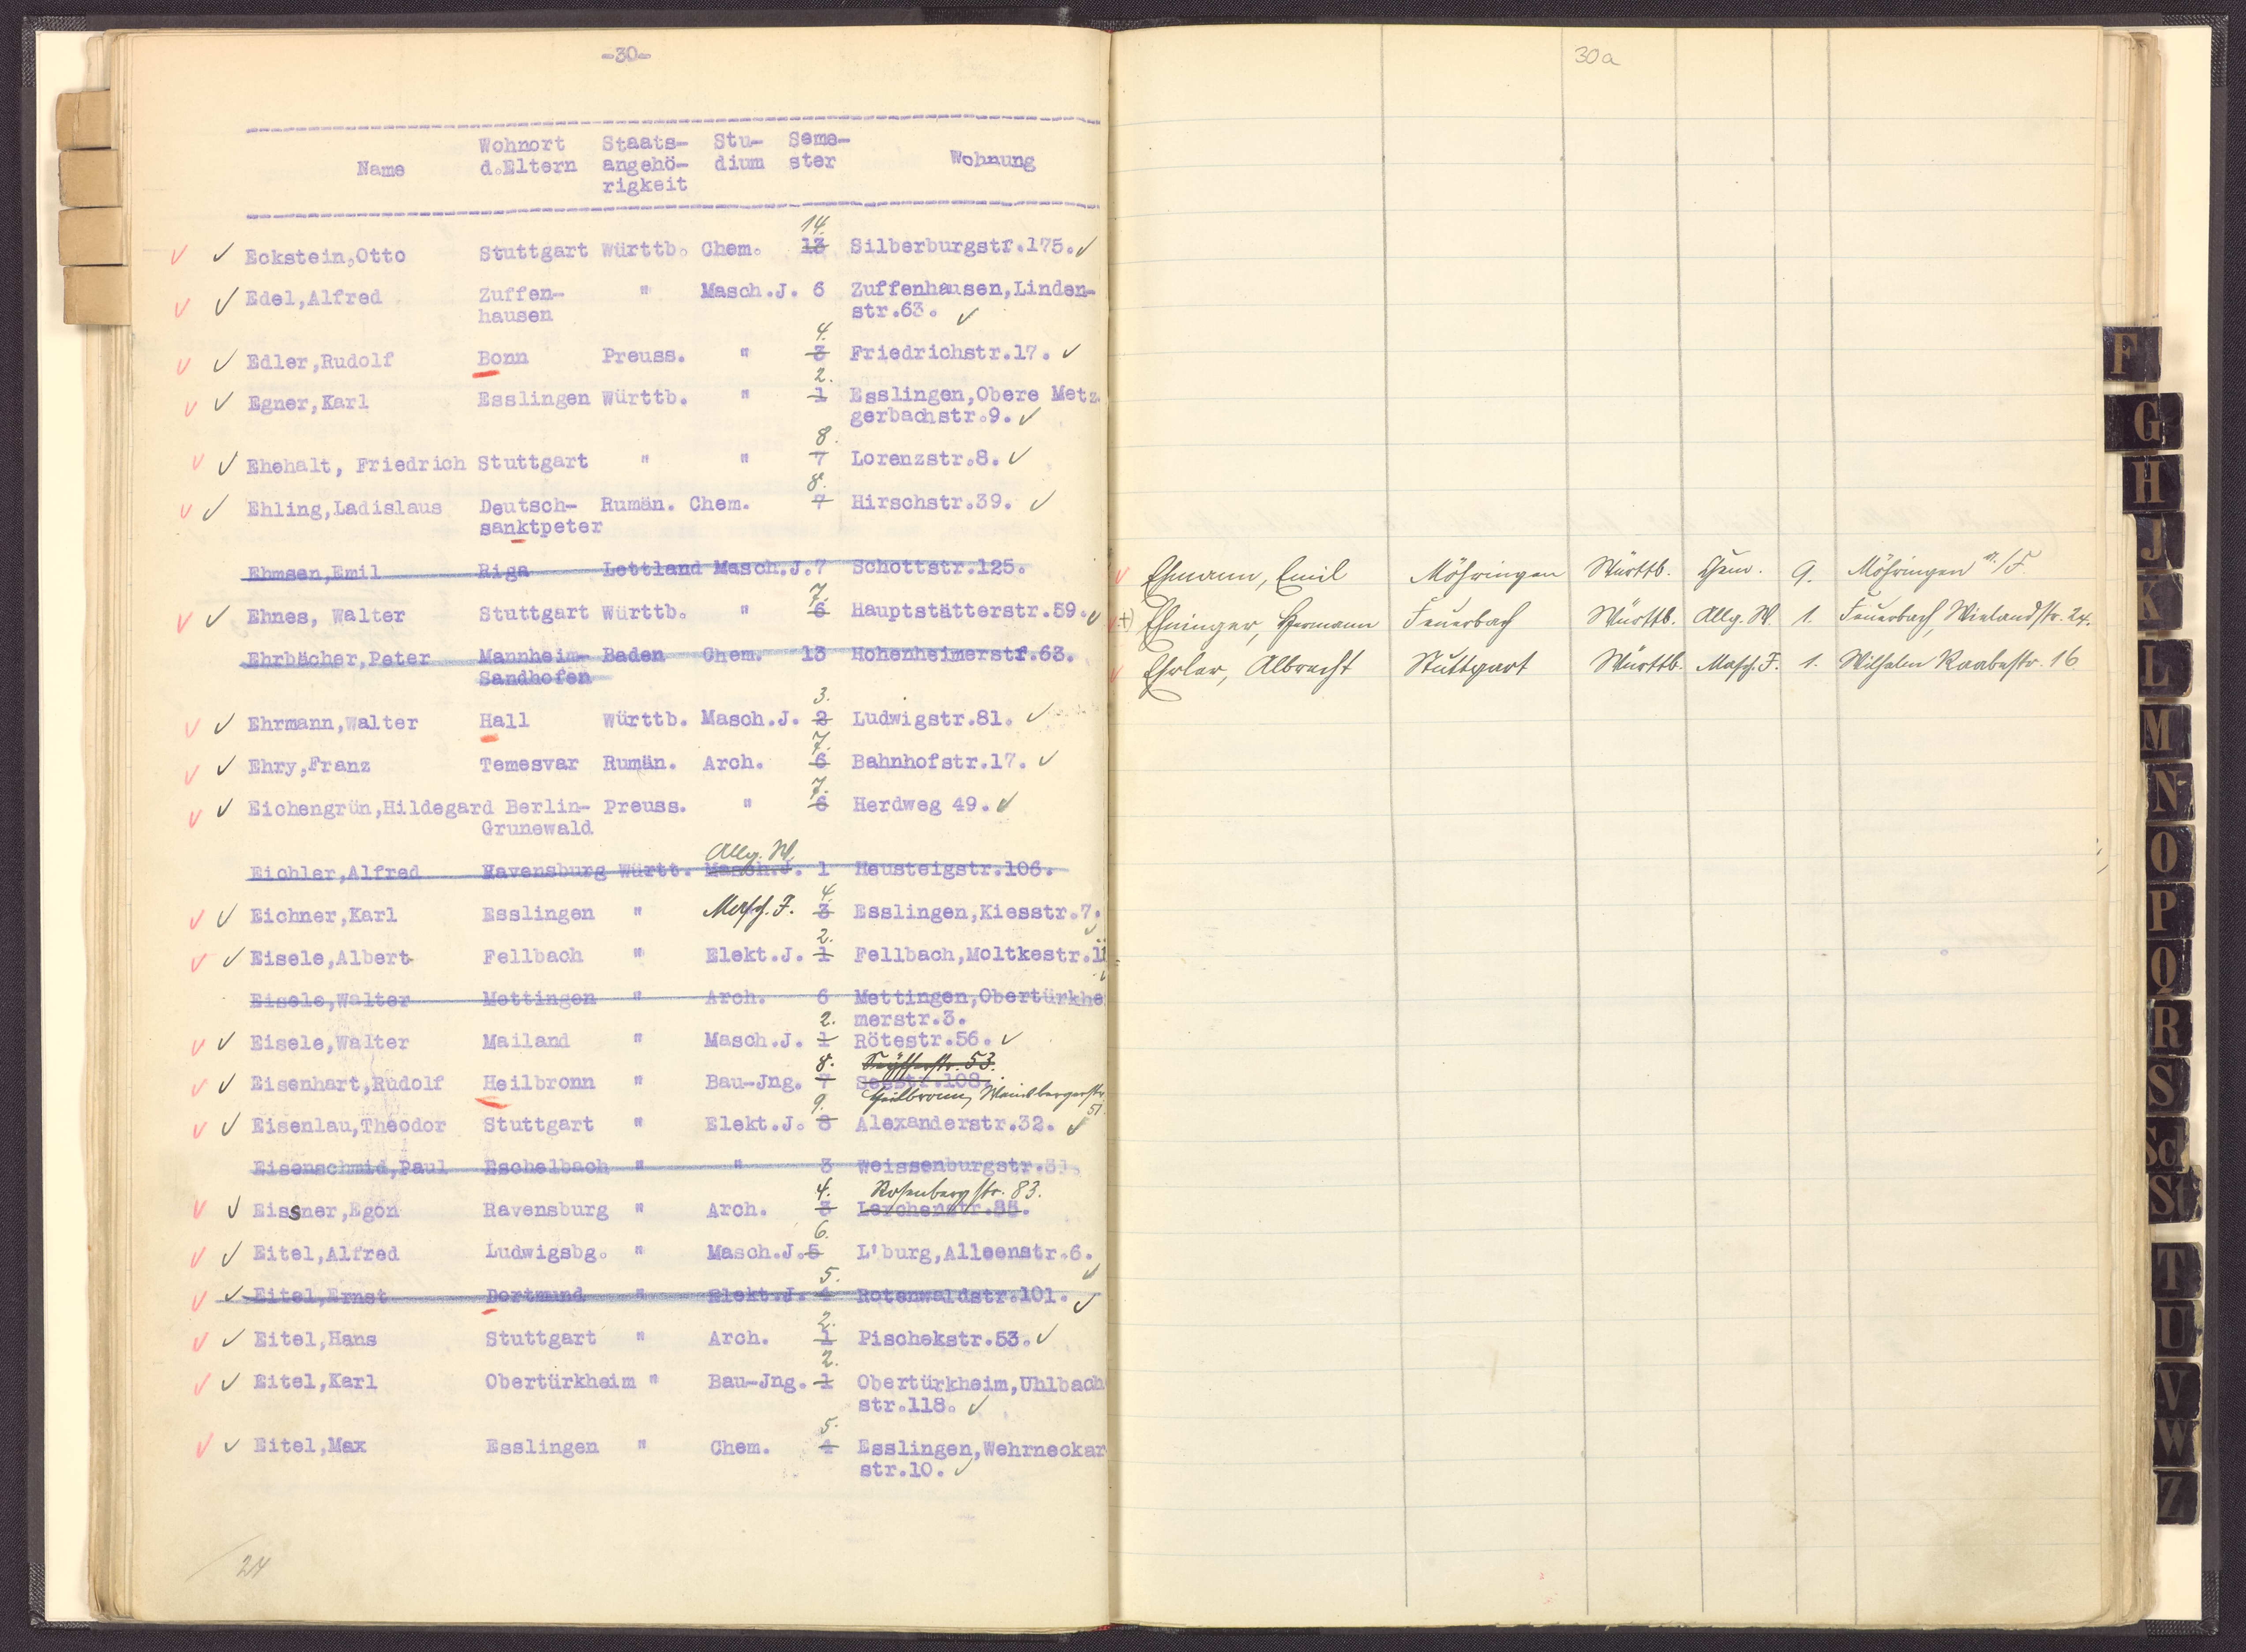 -30-
Wohnort Staats- Stu- Seme-
Name d.Eltern angehö- dium ster Wohnung
rigkeit
14.
Eckstein,Otto Stuttgart Württb. Chem. 13 Silberburgstr.175.
Edel,Alfred Zuffen- " Masch.J. 6 Zuffenhausen,Linden-
hausen str.63.
4.
Edler,Rudolf Bonn Preuss. " 3 Friedrichstr.17.
2.
Egner,Karl Esslingen Württb. " 1 Esslingen,Obere Metz
gerbachstr.9.
8.
Ehehalt, Friedrich Stuttgart " " 7 Lorenzstr.8.
8.
Ehling,Ladislaus Deutsch- Rumän. Chem. 7 Hirschstr.39.
sanktpeter
Ehmsen,Emil Riga Lettland Masch.J.7 Schottstr.125.
7.
Ehnes, Walter Stuttgart Württb. " 6 Hauptstätterstr.59.
Ehrbächer,Peter Mannheim- Baden Chem. 13 Hohenheimerstr.63.
Sandhofen
3.
Ehrmann,Walter Hall Württb. Masch.J. 2 Ludwigstr.81.
7.
Ehry,Franz Temesvar Rumän. Arch. 6 Bahnhofstr.17.
7.
Eichengrün,Hildegard Berlin- Preuss. " 6 Herdweg 49.
Grunewald
Allg. W.
Eichler,Alfred Ravensburg Württ. Masch.J. 1 Heusteigstr.106.
4.
Eichner,Karl Esslingen " Masch. J. 3 Esslingen,Kiesstr.7.
2.
Eisele,Albert Fellbach " Elekt.J. 1 Fellbach,Moltkestr.11
Eisele,Walter Mettingen " Arch. 6 Mettingen,Obertürkhe
2. merstr.3.
Eisele,Walter Mailand " Masch.J. 1 Rötestr.56.
8. 53.
Eisenhart,Rudolf Heilbronn " Bau-Jng. 7 Seestr.108.
9. Heilbronn, Weinsbergerstr.
51
Eisenlau,Theodor Stuttgart " Elekt.J. 8 Alexanderstr.32.
Eisenschmid,Paul Eschelbach " " 3 Weissenburgstr.31.
4. Rosenbergstr. 83.
Eissner,Egon Ravensburg " Arch. 3 Lerchenstr.
6.
Eitel,Alfred Ludwigsbg. " Masch.J.5 L'burg,Alleenstr.6.
5.
Eitel,Ernst Dortmund " Elekt.J. 4 Rotenwaldstr.101.
2.
Eitel,Hans Stuttgart " Arch. 1 Pischekstr.53.
2.
Eitel,Karl Obertürkheim " Bau-Jng. 1 Obertürkheim,Uhlbach
str.118.
5.
Eitel,Max Esslingen " Chem. 4 Esslingen,Wehrneckar
str.10.
24
30a
Ehmann, Emil Möhringen Württb. Chem. 9. Möhringen a./F.
+) Ehninger, Hermann Feuerbach Württb. Allg. W. 1. Feuerbach, Wielandstr. 24.
Ehrler, Albrecht Stuttgart Württb. Masch. J. 1. Wilhelm Raabestr. 16
F
G
H
J
K
L
M
N
O
P
Q
R
S
Sch
St
T
U
V
W
Z